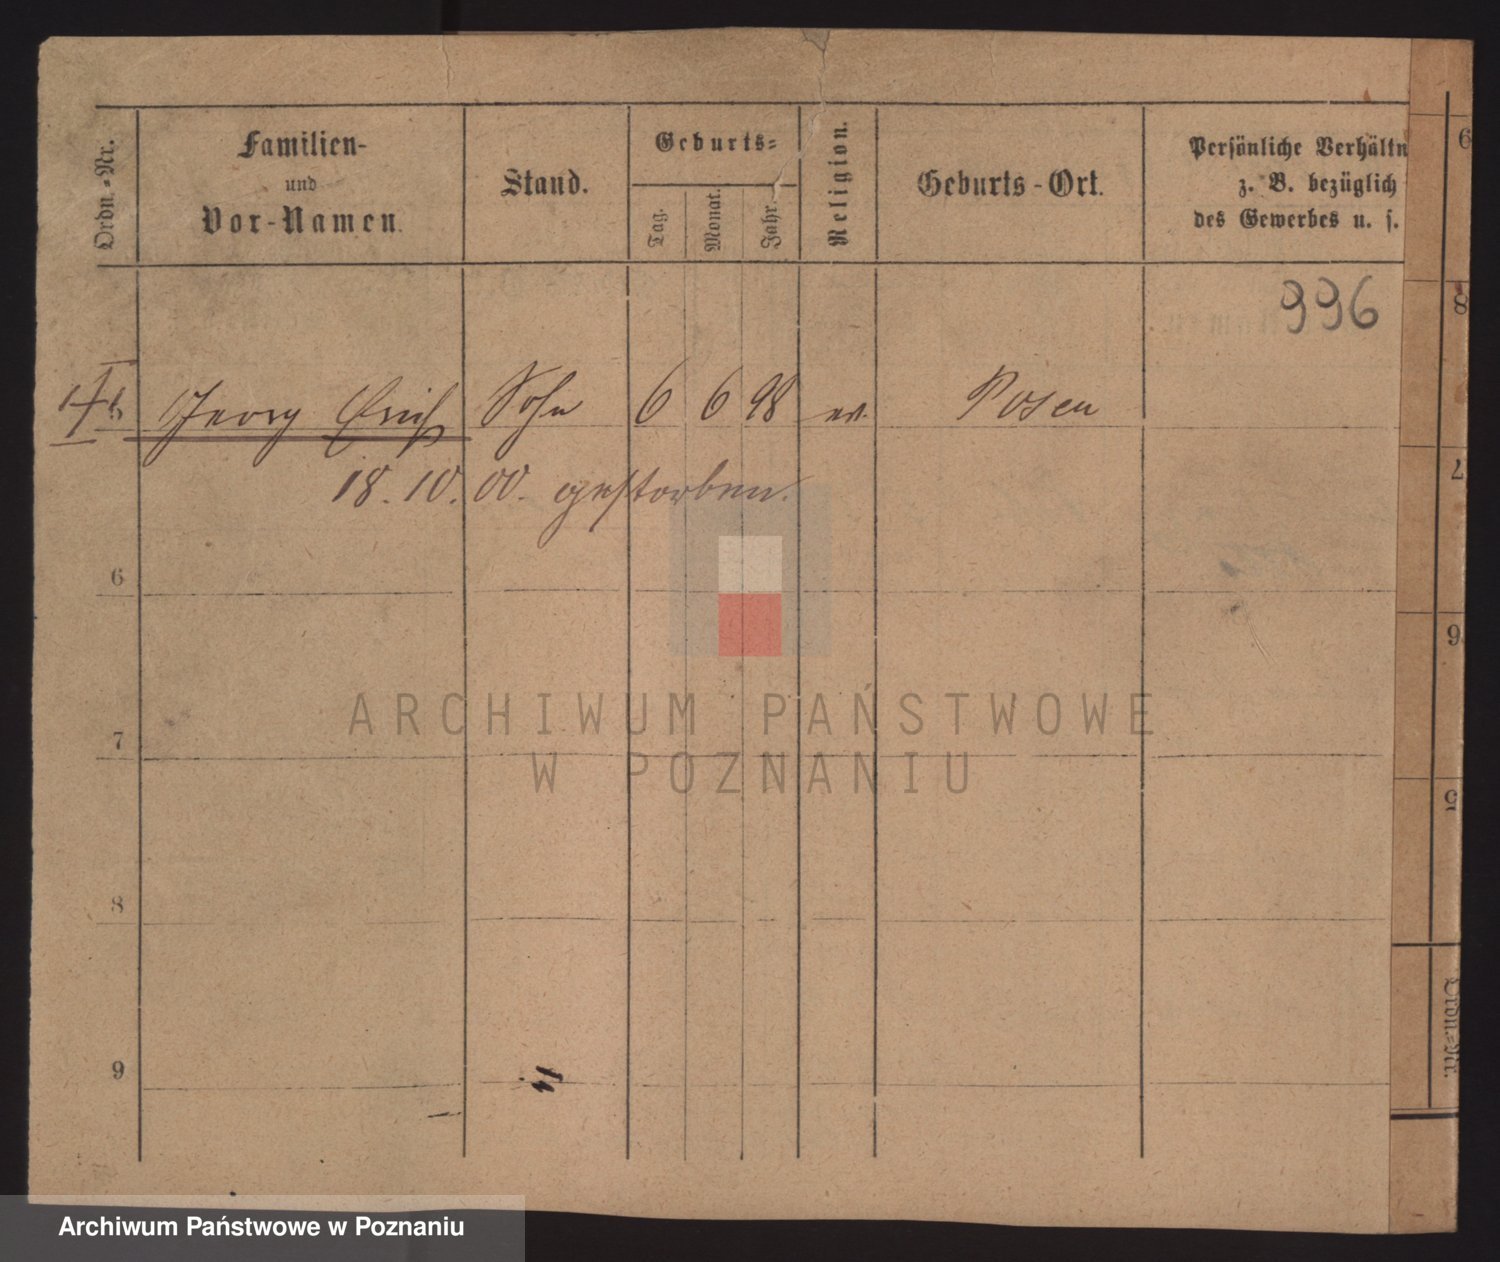 Ordn.-Nr.
Familien-
und
Vor-Namen.
Stand.
Geburts-
Tag.
Monat.
Jahr.
Religion.
Geburts-Ort.
Persönliche Verhältn
z. B. bezüglich
des Gewerbes u. s.
996
5 Georg Erich Sohn 6 6 98 ev. Posen
18. 10. 00. gestorben.
6
7
8
9
9
8
7
6
5
Ordn.-Nr.
ARCHIWUM PAŃSTWOWE
W POZNANIU
Archiwum Państwowe w Poznaniu